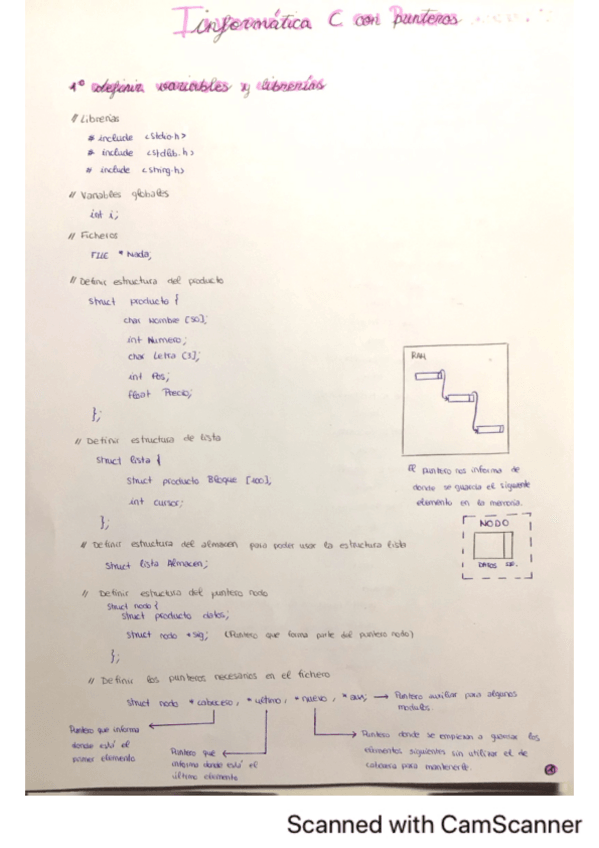 Informática C con Punteros
1º definir variables y librerías
// Librerías
# include <stdio.h>
# include <stdlib.h>
# include <string.h>
// Variables globales
int i;
// Ficheros
FILE * Nada;
// Definir estructura del producto
struct producto {
char Nombre [50];
int Numero;
char Letra [3];
int Pos;
float Precio;
};
RAM
// Definir estructura de lista
struct lista {
struct producto Bloque [100];
int cursor;
};
El puntero nos informa de
donde se guarda el siguiente
elemento en la memoria.
NODO
DATOS SIG.
// Definir estructura del almacen para poder usar la estructura lista
struct lista Almacen;
// Definir estructura del puntero nodo
struct nodo {
struct producto datos;
struct nodo *sig; (Puntero que forma parte del puntero nodo)
};
// Definir los punteros necesarios en el fichero
struct nodo * cabecera, * ultimo, * nuevo, * aux; → Puntero auxiliar para algunos
modulos.
Puntero que informa
donde está el
primer elemento
Puntero que
informa donde está el
último elemento
Puntero donde se empiezan a guardar los
elementos siguientes sin utilizar el de
cabecera para mantenerlo.
Scanned with CamScanner